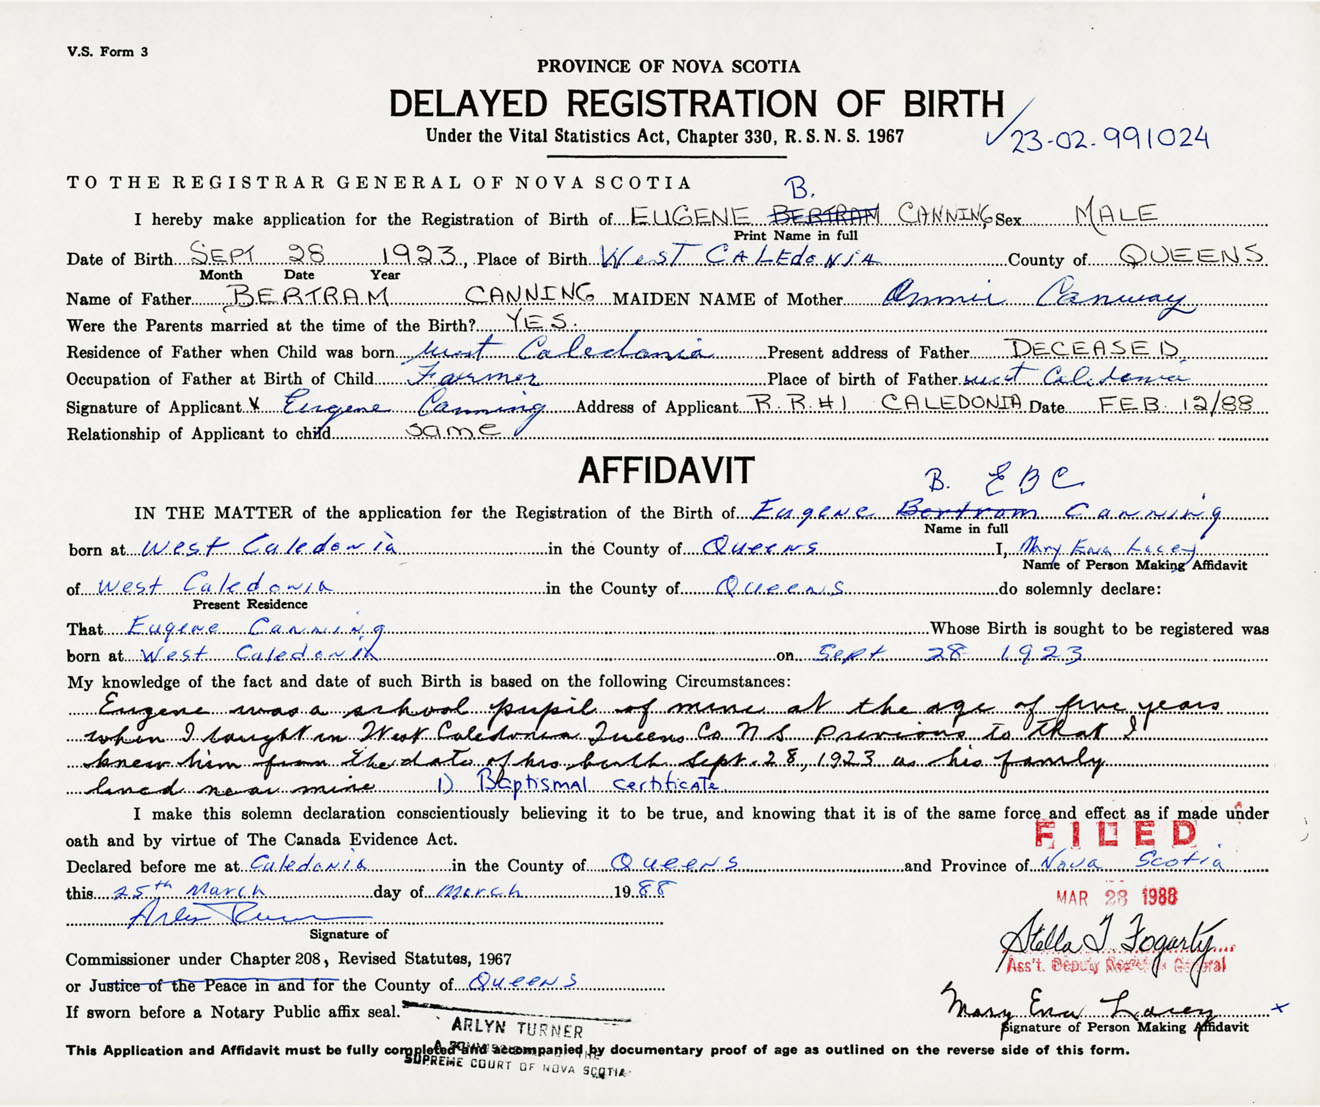 V.S. Form 3
PROVINCE OF NOVA SCOTIA
DELAYED REGISTRATION OF BIRTH
Under the Vital Statistics Act, Chapter 330, R.S.N.S. 1967
23-02-991024
TO THE REGISTRAR GENERAL OF NOVA SCOTIA
B.
I hereby make application for the Registration of Birth of EUGENE BERTRAM CANNING, Sex MALE
Print Name in full
Date of Birth SEPT 28 1923, Place of Birth West CALEdoNIA County of QUEENS
Month Date Year
Name of Father BERTRAM CANNING MAIDEN NAME of Mother Annie Canway
Were the Parents married at the time of the Birth? YES.
Residence of Father when Child was born West Caledonia Present address of Father DECEASED
Occupation of Father at Birth of Child Farmer Place of birth of Father west Caledonia
Signature of Applicant X Eugene Canning Address of Applicant R.R.#1 CALEDONIA Date FEB. 12/88
Relationship of Applicant to child same
AFFIDAVIT
B. EBC
IN THE MATTER of the application for the Registration of the Birth of Eugene Bertram Canning
Name in full
born at West Caledonia in the County of Queens I, Mary Ena Lacey
Name of Person Making Affidavit
of West Caledonia in the County of Queens do solemnly declare:
Present Residence
That Eugene Canning Whose Birth is sought to be registered was
born at West Caledonia on Sept 28 1923
My knowledge of the fact and date of such Birth is based on the following Circumstances:
Eugene was a school pupil of mine at the age of five years
when I taught in West Caledonia Queens Co. N.S. Previous to that I
knew him from the date of his birth Sept. 28, 1923 as his family
lived near mine 1) Baptismal certificate
I make this solemn declaration conscientiously believing it to be true, and knowing that it is of the same force and effect as if made under
oath and by virtue of The Canada Evidence Act.
FILED
Declared before me at Caledonia in the County of Queens and Province of Nova Scotia
this 25th March day of March 1988
MAR 28 1988
Arlyn Turner
Signature of
Stella T Fogarty
Ass't. Deputy Registrar General
Commissioner under Chapter 208, Revised Statutes, 1967
or Justice of the Peace in and for the County of Queens
If sworn before a Notary Public affix seal.
Mary Ena Lacey x
Signature of Person Making Affidavit
ARLYN TURNER
This Application and Affidavit must be fully completed and accompanied by documentary proof of age as outlined on the reverse side of this form.
SUPREME COURT OF NOVA SCOTIA